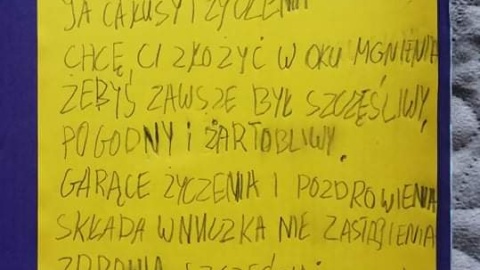 JA CAŁUSY I ŻYCZENIA
CHCĘ CI ZŁOŻYĆ W OKU MGNIENIA
ŻEBYŚ ZAWSZE BYŁ SZCZĘŚLIWY,
POGODNY I ŻARTOBLIWY.
GARĄCE ŻYCZENIA I POZDROWIENIA
SKŁADA WNUCZKA NIE ZASTĄPIENIA
ZDROWIA